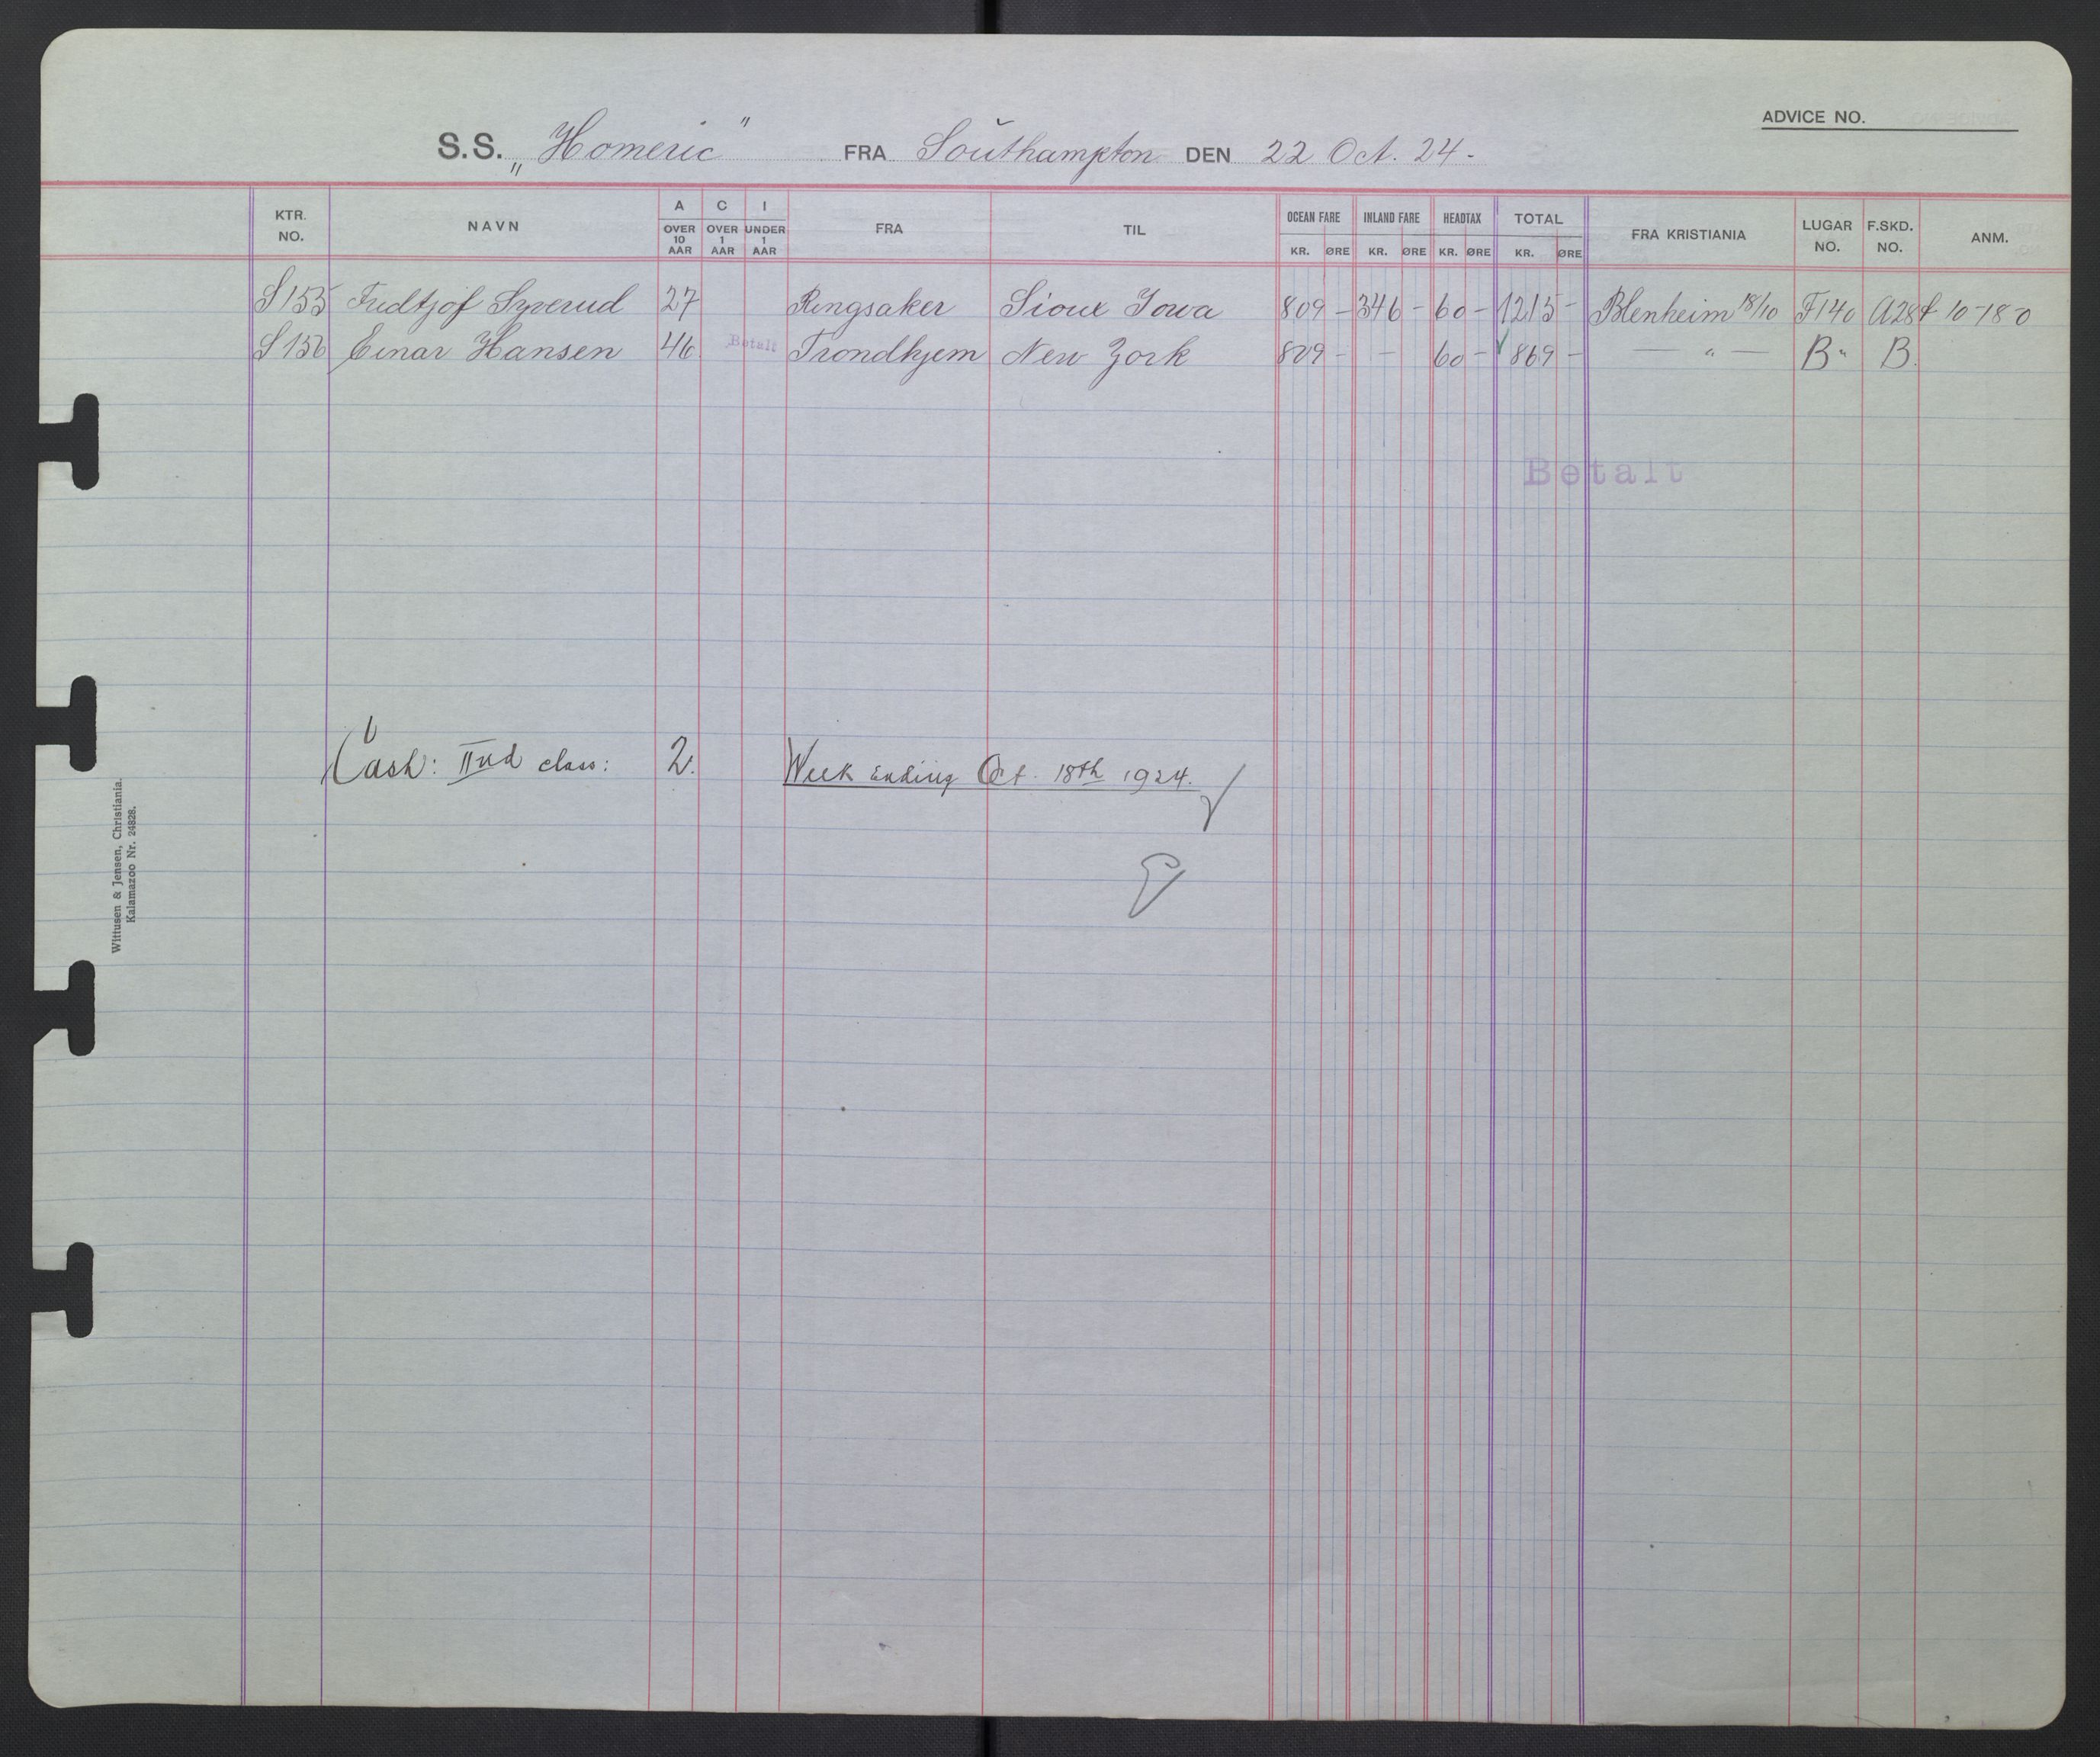 ADVICE NO.
S.S. „Homeric" FRA Southampton DEN 22 Oct. 24-
KTR. NO. NAVN A OVER 10 AAR C OVER 1 AAR I UNDER 1 AAR FRA TIL OCEAN FARE KR. ØRE INLAND FARE KR. ØRE HEADTAX KR. ØRE TOTAL KR. ØRE FRA KRISTIANIA LUGAR NO. F.SKD. NO. ANM.
S155 Fridtjof Syverud 27 Ringsaker Sioux Iowa 809 - 346 - 60 - 1215 - Blenheim 18/10 F140 £ 10-18-0
S156 Einar Hansen 46 Betalt Trondhjem New York 809 - - 60 - 869 - — " — B" B.
Betalt
Cash: IInd class: 2. Week ending Oct. 18th 1924.
Wittusen & Jensen, Christiania.
Kalamazoo Nr. 24828.